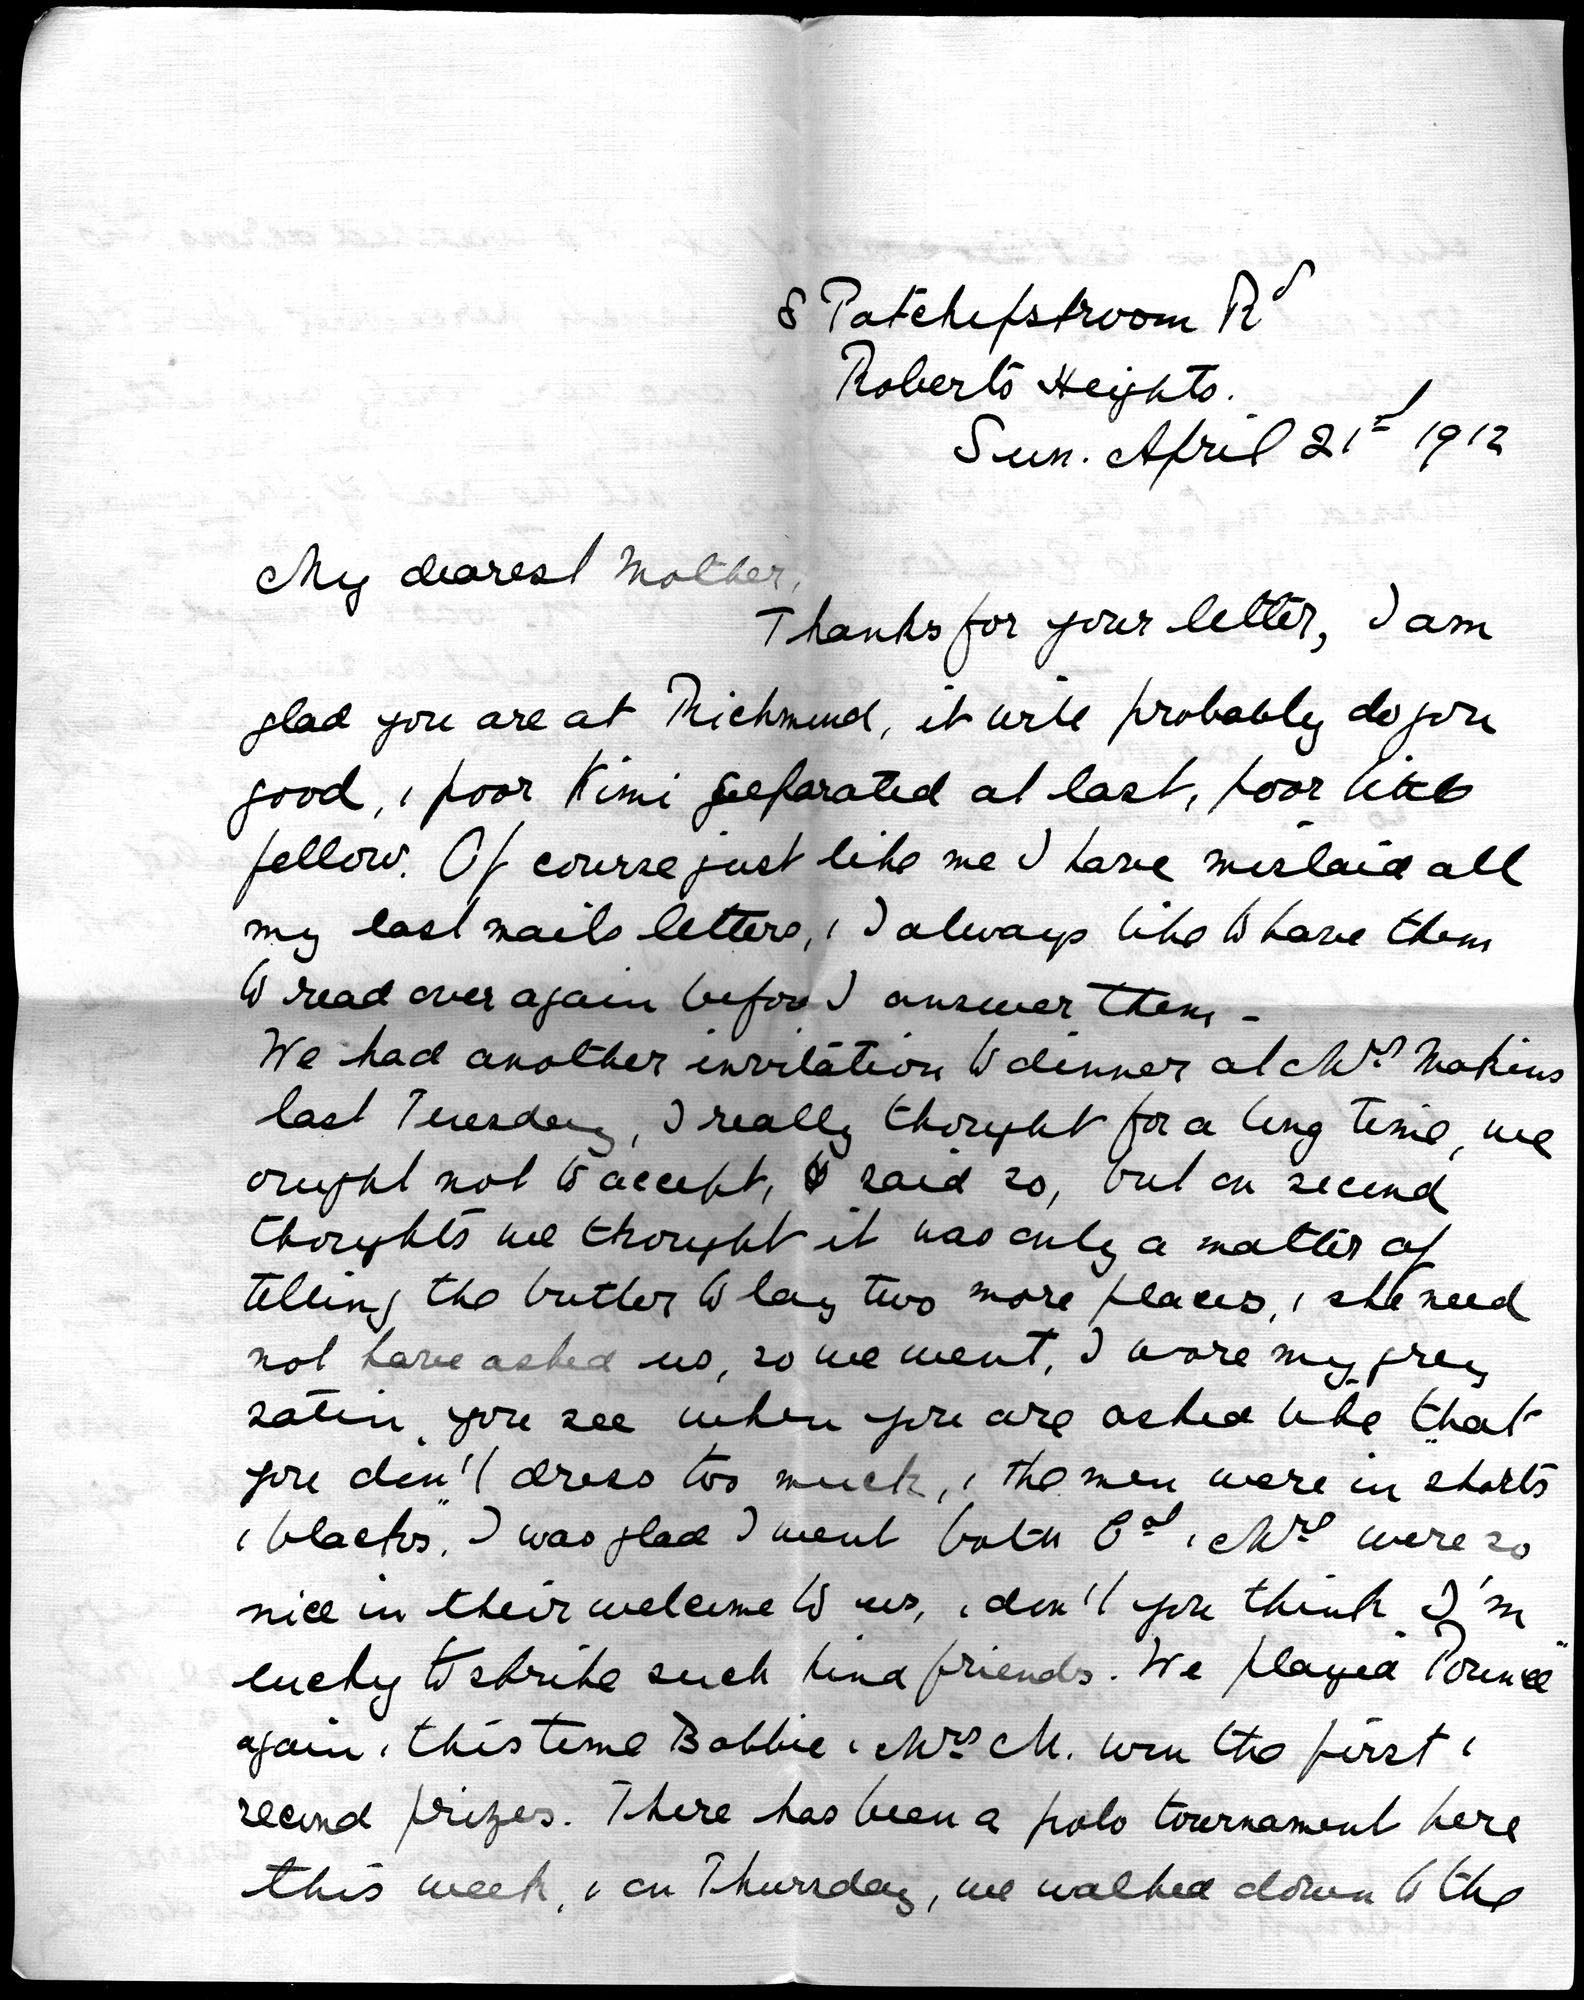 8 Potchefstroom Rd
Roberts Heights.
Sun. April 21st 1912
My dearest Mother,
Thanks for your letter, I am
glad you are at Richmond, it will probably do you
good, & poor Kimi seeparated at last, poor little
fellow. Of course just like me I have mislaid all
my last mails letters, & I always like to have them
to read over again before I answer them -
We had another invitation to dinner at Mrs Makins
last Tuesday, I really thought for a long time, we
ought not to accept, & said so, but on second
thoughts we thought it was only a matter of
telling the butler to lay two more places, & she need
not have asked us, so we went, I wore my grey
satin, you see when you are asked like that
you don't dress too much, & the men were in "shorts
& blacks", I was glad I went both Col & Mrs were so
nice in their welcome to us, & don't you think I'm
lucky to strike such kind friends. We played "Pounce"
again, & this time Bobbie & Mrs M. won the first &
second prizes. There has been a polo tournament here
this week, & on Thursday, we walked down to the